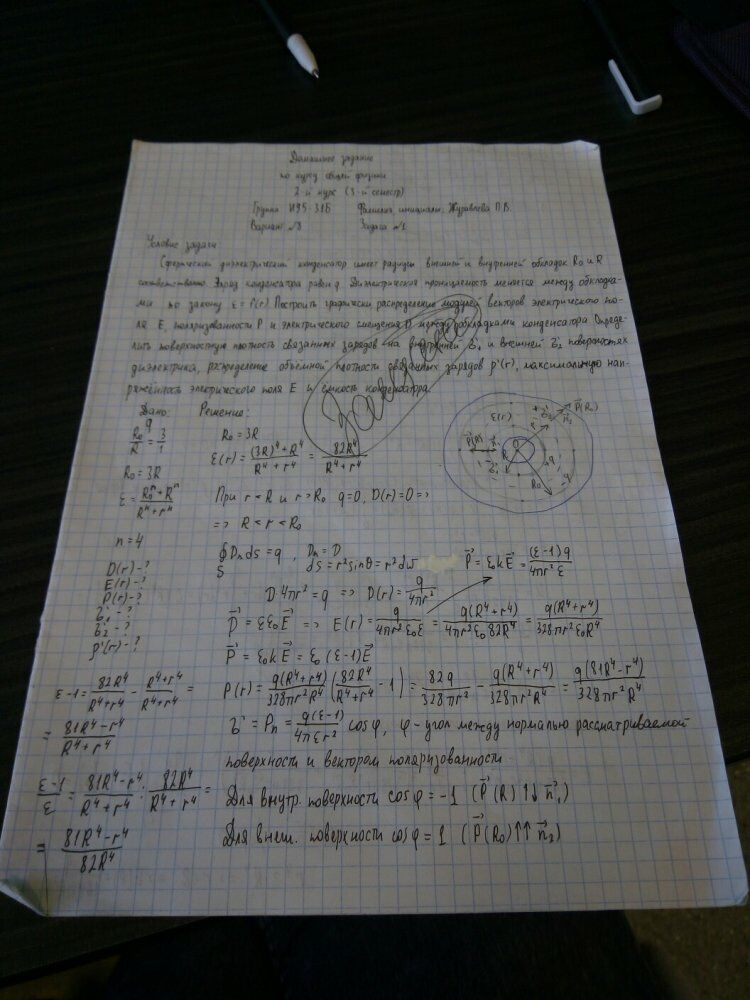 Домашнее задание
по курсу общей физики
2-й курс (3-й семестр)
Группа ИУ5-31Б Фамилия инициалы: Журавлева П.В.
Вариант №8 Задача №1
Условие задачи
Сферический диэлектрический конденсатор имеет радиусы внешней и внутренней обкладок R₀ и R
соответственно. Заряд конденсатора равен q. Диэлектрическая проницаемость меняется между обкладка-
ми по закону ε = f(r). Построить графически распределение модулей векторов электрического по-
ля E, поляризованности P и электрического смещения D между обкладками конденсатора. Опреде-
лить поверхностную плотность связанных зарядов на внутренней σ'₁ и внешней σ'₂ поверхностях
диэлектрика, распределение объемной плотности связанных зарядов ρ'(r), максимальную нап-
ряженность электрического поля E и емкость конденсатора.
Дано: Решение:
q
R₀/R = 3/1
R₀ = 3R
ε = (R₀ⁿ + Rⁿ)/(Rⁿ + rⁿ)
n = 4
D(r) - ?
E(r) - ?
P(r) - ?
σ'₁ - ?
σ'₂ - ?
ρ'(r) - ?
R₀ = 3R
ε(r) = ((3R)⁴ + R⁴)/(R⁴ + r⁴) = 82R⁴/(R⁴ + r⁴)
При r < R и r > R₀ q = 0, D(r) = 0 =>
=> R < r < R₀
∮ Dₙ dS = q , Dₙ = D
S dS = r² sinθ = r² dω
P⃗ = ε₀kE⃗ = (ε-1)q/(4πr²ε)
D·4πr² = q => D(r) = q/(4πr²)
D⃗ = εε₀E⃗ => E(r) = q/(4πr²ε₀ε) = q(R⁴+r⁴)/(4πr²ε₀ 82R⁴) = q(R⁴+r⁴)/(328πr²ε₀R⁴)
P⃗ = ε₀kE⃗ = ε₀(ε-1)E⃗
ε-1 = 82R⁴/(R⁴+r⁴) - (R⁴+r⁴)/(R⁴+r⁴) =
= (81R⁴-r⁴)/(R⁴+r⁴)
P(r) = q(R⁴+r⁴)/(328πr²R⁴) (82R⁴/(R⁴+r⁴) - 1) = 82q/(328πr²) - q(R⁴+r⁴)/(328πr²R⁴) = q(81R⁴-r⁴)/(328πr²R⁴)
σ' = Pₙ = q(ε-1)/(4πεr²) cosφ, φ - угол между нормалью рассматриваемой
поверхности и вектором поляризованности
(ε-1)/ε = (81R⁴-r⁴)/(R⁴+r⁴) : 82R⁴/(R⁴+r⁴) =
= (81R⁴-r⁴)/(82R⁴)
Для внутр. поверхности cosφ = -1 (P⃗(R) ↑↓ n⃗₁)
Для внеш. поверхности cosφ = 1 (P⃗(R₀) ↑↑ n⃗₂)
ε(r)
P⃗(R₀)
P⃗(R)
R₀
R